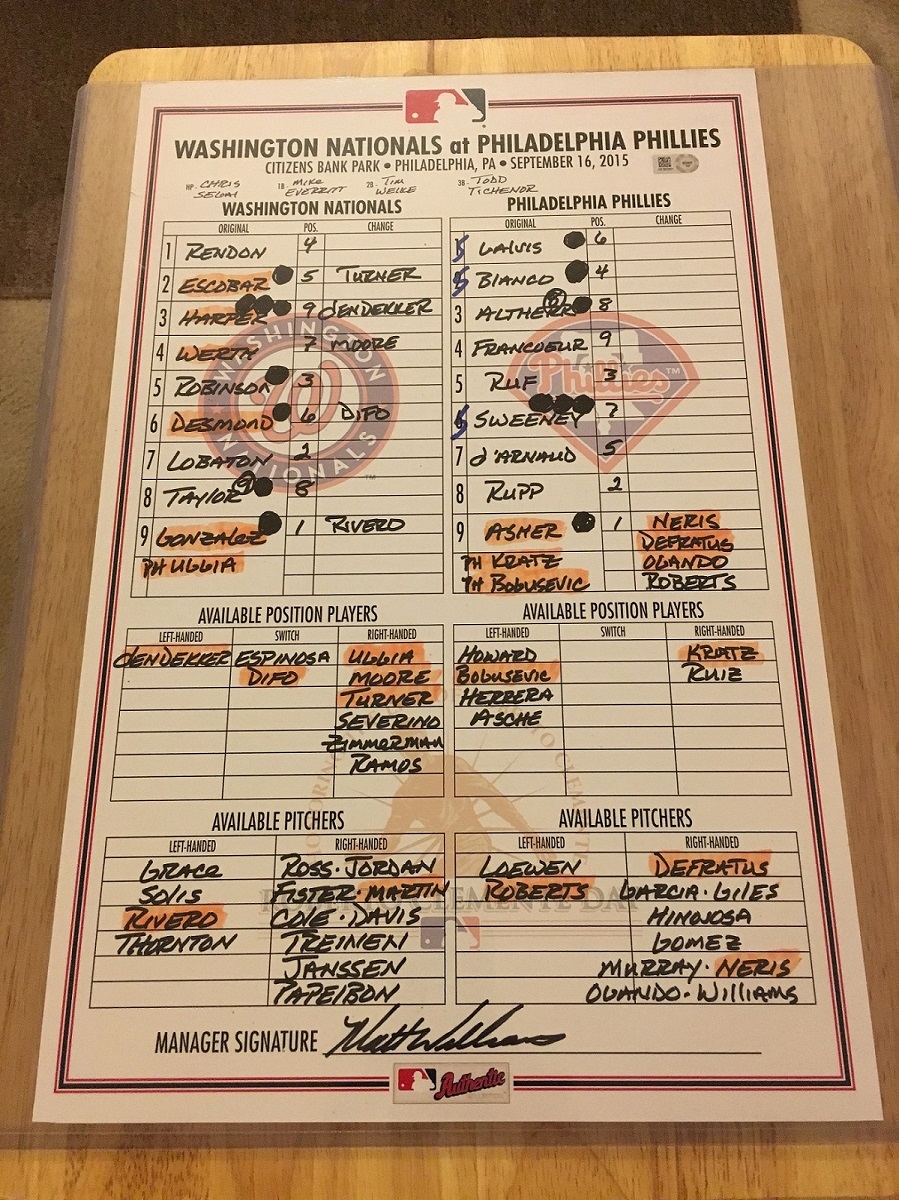 WASHINGTON NATIONALS at PHILADELPHIA PHILLIES
CITIZENS BANK PARK • PHILADELPHIA, PA • SEPTEMBER 16, 2015
HP. CHRIS SEGAL 1B. MIKE EVERRITT 2B. TIM WELKE 3B. TODD TICHENOR
WASHINGTON NATIONALS
ORIGINAL POS. CHANGE
1 RENDON 4
2 ESCOBAR 5 TURNER
3 HARPER 9 dENDEKKER
4 WERTH 7 MOORE
5 ROBINSON 3
6 DESMOND 6 DIFO
7 LOBATON 2
8 TAYLOR 8
9 GONZALEZ 1 RIVERO
PH UGGLA
PHILADELPHIA PHILLIES
ORIGINAL POS. CHANGE
S GALVIS 6
S BIANCO 4
3 ALTHERR 8
4 FRANCOEUR 9
5 RUF 3
S SWEENEY 7
7 d'ARNAUD 5
8 RUPP 2
9 ASHER 1 NERIS
DEFRATUS
PH KRATZ OLANDO
PH BOGUSEVIC ROBERTS
WASHINGTON NATIONALS
Phillies
AVAILABLE POSITION PLAYERS
LEFT-HANDED SWITCH RIGHT-HANDED
dENDEKKER ESPINOSA UGGLA
DIFO MOORE
TURNER
SEVERINO
ZIMMERMAN
RAMOS
AVAILABLE POSITION PLAYERS
LEFT-HANDED SWITCH RIGHT-HANDED
HOWARD KRATZ
BOGUSEVIC RUIZ
HERRERA
ASCHE
AVAILABLE PITCHERS
LEFT-HANDED RIGHT-HANDED
GRACE ROSS·JORDAN
SOLIS FISTER·MARTIN
RIVERO COLE·DAVIS
THORNTON TREINEN
JANSSEN
PAPELBON
AVAILABLE PITCHERS
LEFT-HANDED RIGHT-HANDED
LOEWEN DEFRATUS
ROBERTS GARCIA·GILES
HINOJOSA
GOMEZ
MURRAY·NERIS
OLANDO·WILLIAMS
MANAGER SIGNATURE Matt Williams
Authentic